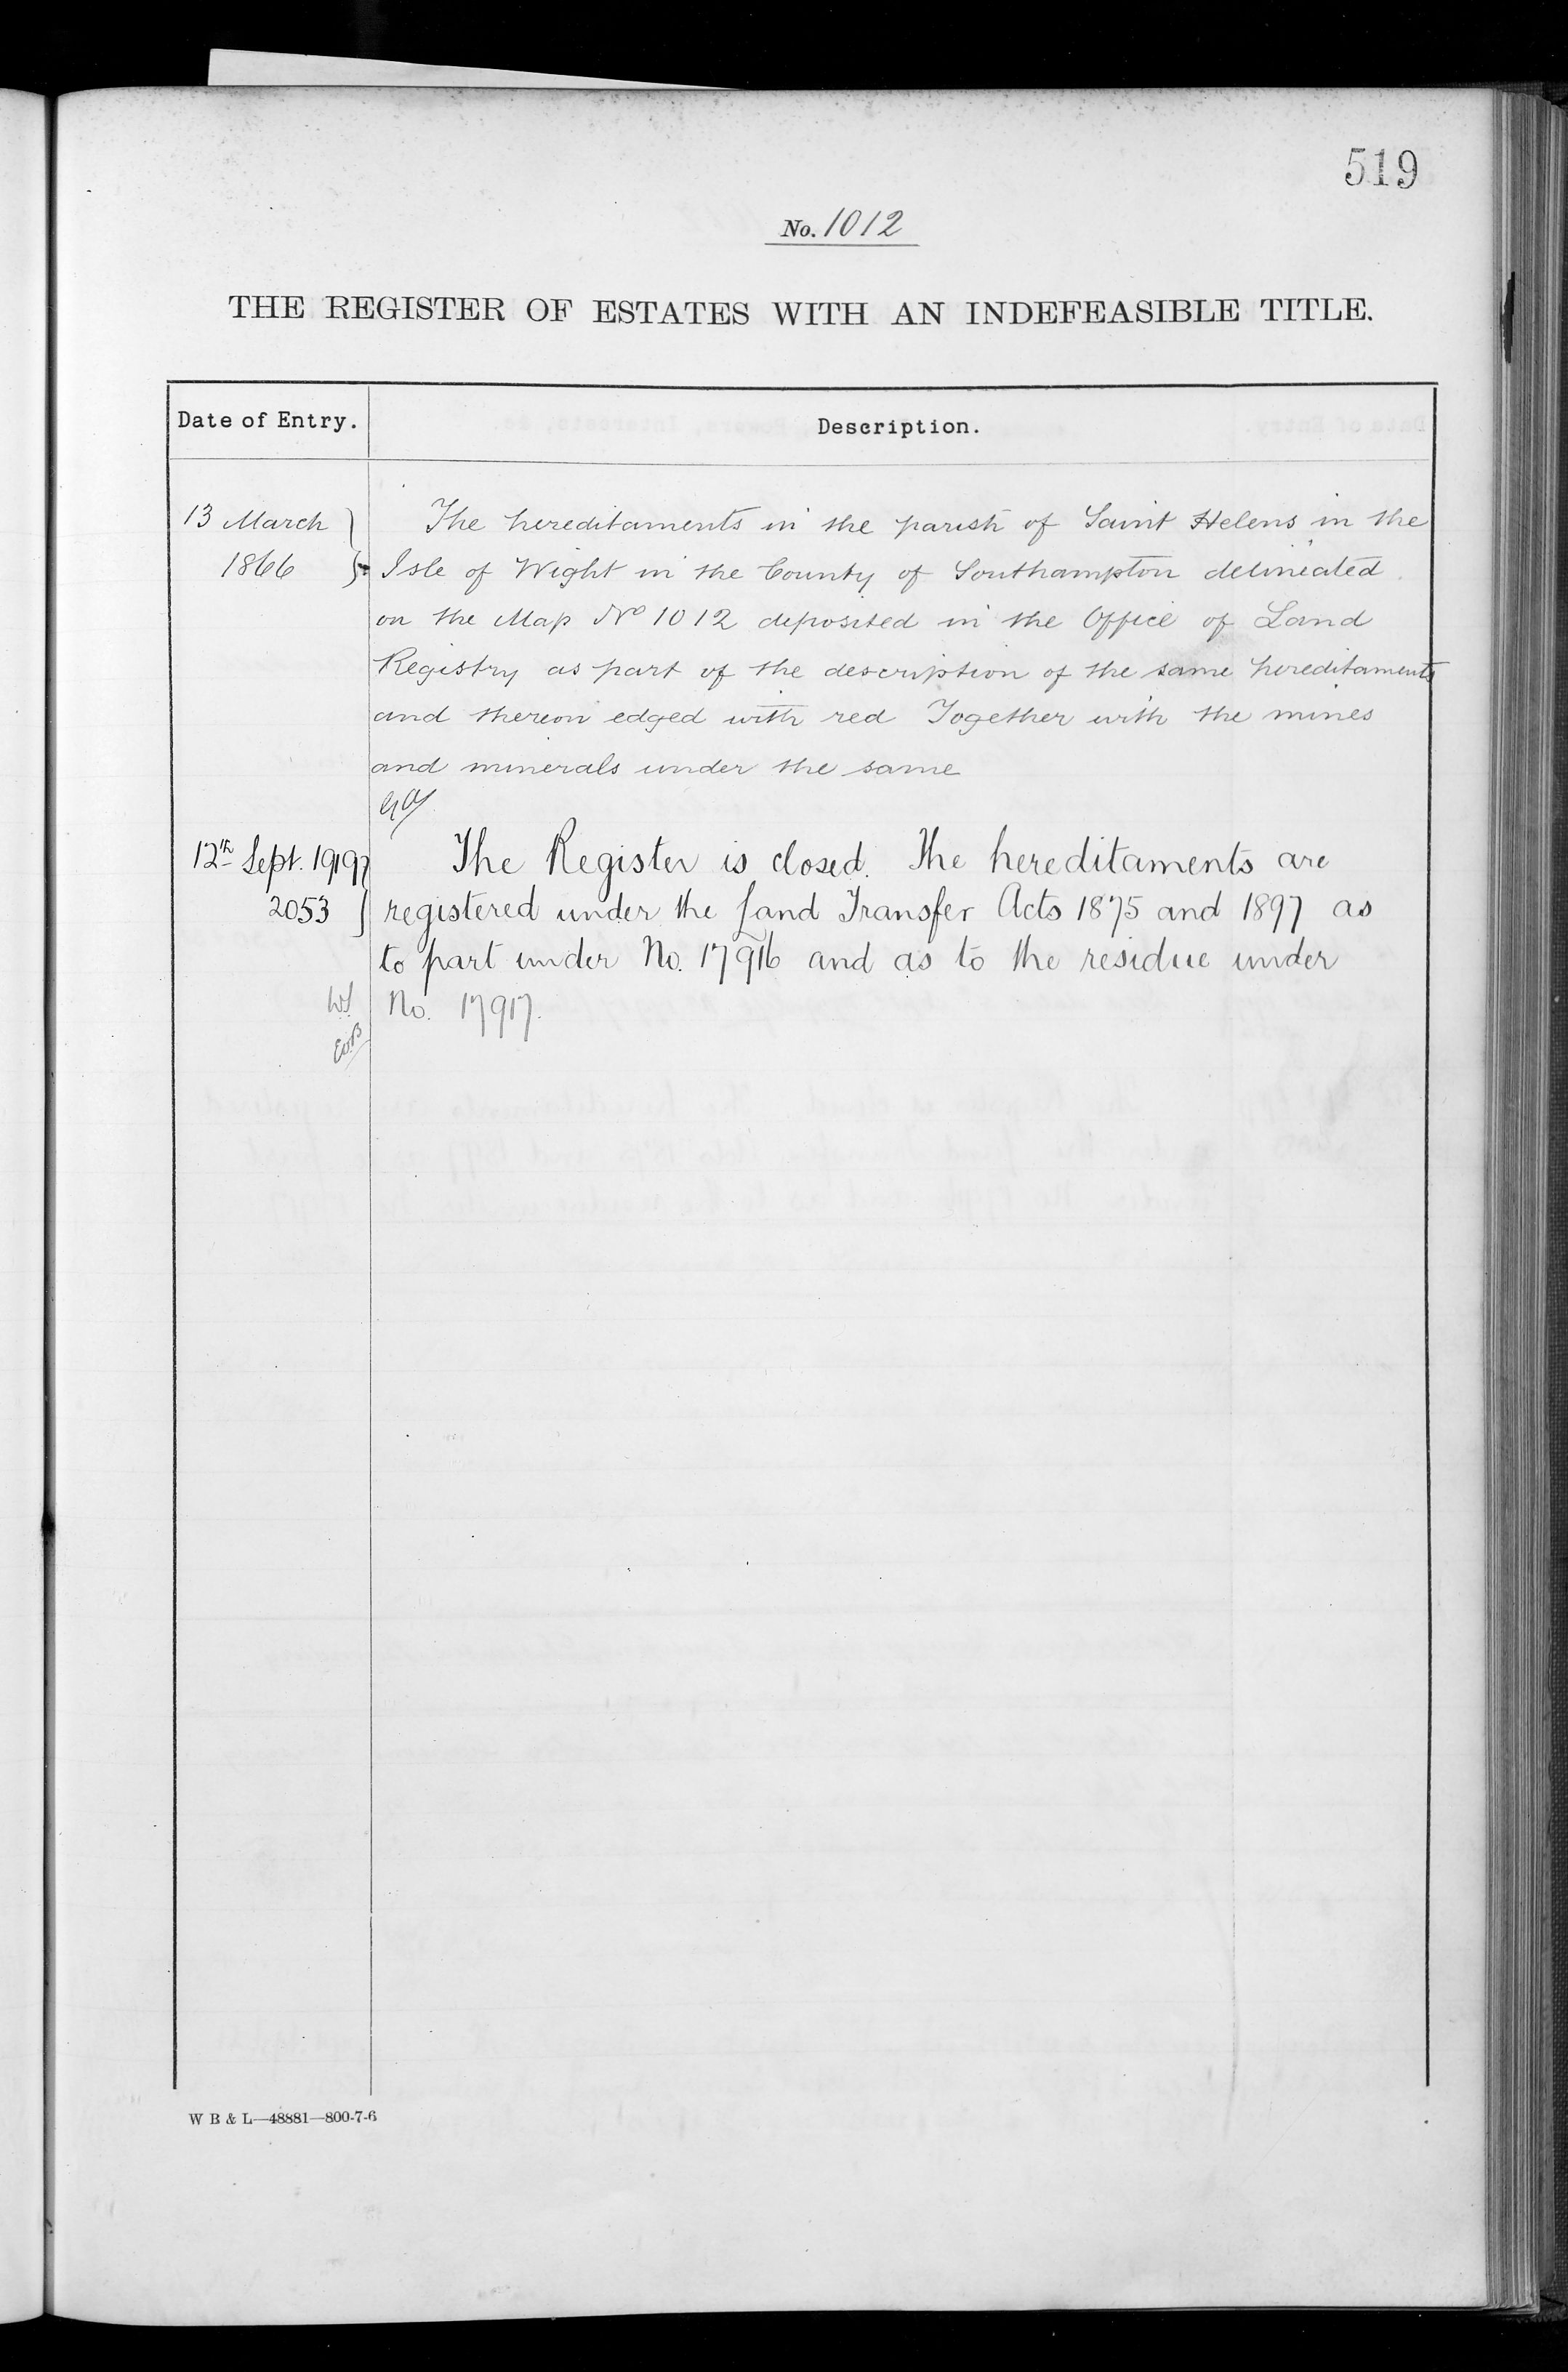 519
No. 1012
THE REGISTER OF ESTATES WITH AN INDEFEASIBLE TITLE.
Date of Entry. Description.
13 March } The hereditaments in the parish of Saint Helens in the
1866 } Isle of Wight in the County of Southampton delineated
on the Map No 1012 deposited in the Office of Land
Registry as part of the description of the same hereditaments
and thereon edged with red Together with the mines
and minerals under the same
12th Sept. 1919 } The Register is closed. The hereditaments are
2053 } registered under the Land Transfer Acts 1875 and 1897 as
to part under No. 17916 and as to the residue under
No. 17917.
W B & L—48881—800-7-6